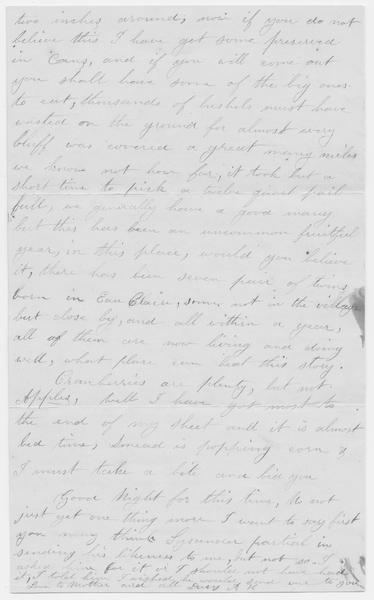 two inches around; now if you do not
believe this I have got some preserved
in Cans, and if you will come out
you shall have some of the big ones
to eat, thousands of bushels must have
wasted on the ground for almost every
bluff was covered a great many miles
we know not how far, it took but a
short time to pick a twelve quart pail
full, we generally have a good many
but this has been an uncommon fruitful
year, in this place, would you believe
it, there has been seven pair of twins
born in Eau Claire, some not in the village
but close by, and all within a year,
all of them are now living and doing
well, what place can beat this story.
Cranberries are plenty, but not
Apples, well I have got most to
the end of my sheet and it is almost
bed time, Smead is popping corn &
I must take a bite and bid you
Good Night for this time, No not
just yet one thing more I want to say first
you may think Lysander partial in
sending his likeness to me, but not so I
asked him for it or I should not have had
it, I told him I wished he would send one to you
Love to Mother and all Lucy A. K